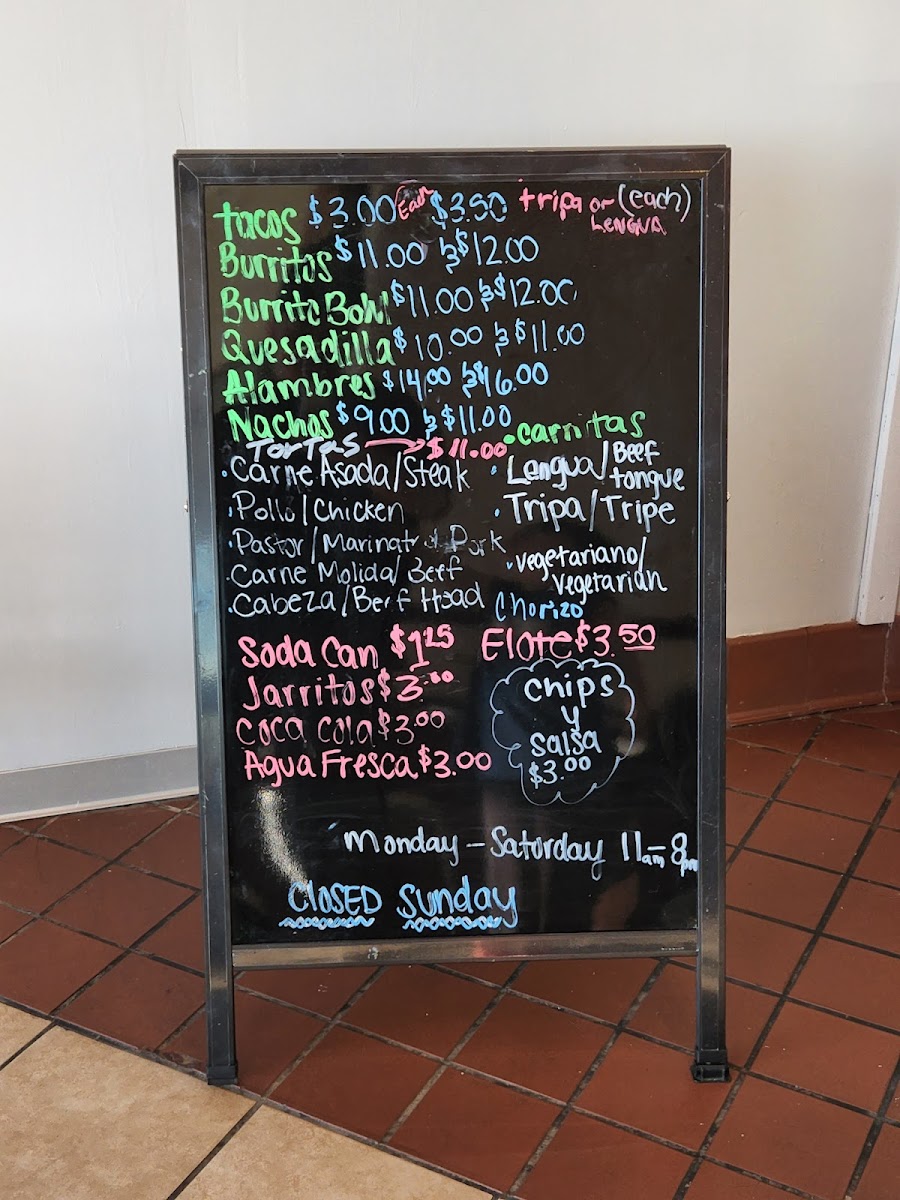 tacos $3.00 Each $3.50 tripa or LENGUA (each)
Burritos $11.00 y $12.00
Burrito Bowl $11.00 y $12.00
Quesadilla $10.00 y $11.00
Alambres $14.00 y $16.00
Nachos $9.00 y $11.00
TorTas → $11.00
·Carne Asada/Steak
·Pollo/Chicken
·Pastor/Marinated Pork
·Carne Molida/Beef
·Cabeza/Beef Head
·carnitas
·Lengua/Beef
tongue
·Tripa/Tripe
·vegetariano/
vegetarian
Chorizo
Soda Can $1.25
Jarritos $3.00
Coca Cola $3.00
Agua Fresca $3.00
Elote $3.50
Chips
y
Salsa
$3.00
Monday - Saturday 11am - 8pm
CLOSED Sunday